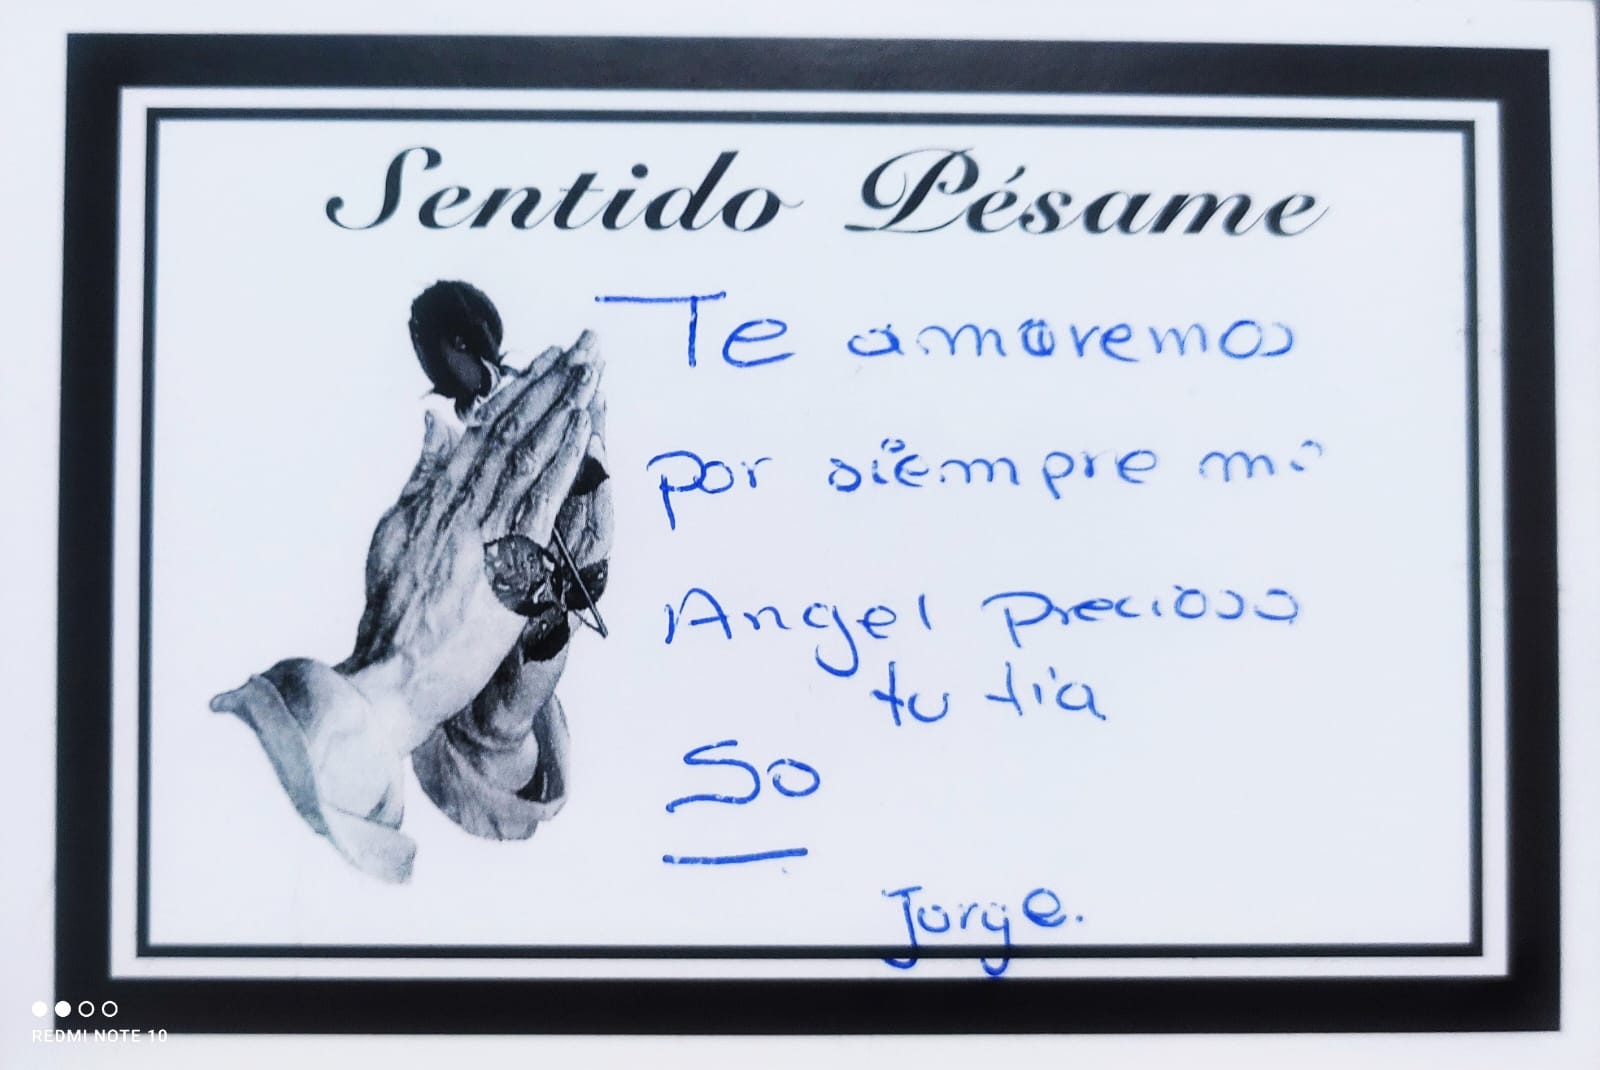 Sentido Pésame
Te amaremos
por siempre mi
Angel precioso
tu tía
So
Jorge.
REDMI NOTE 10